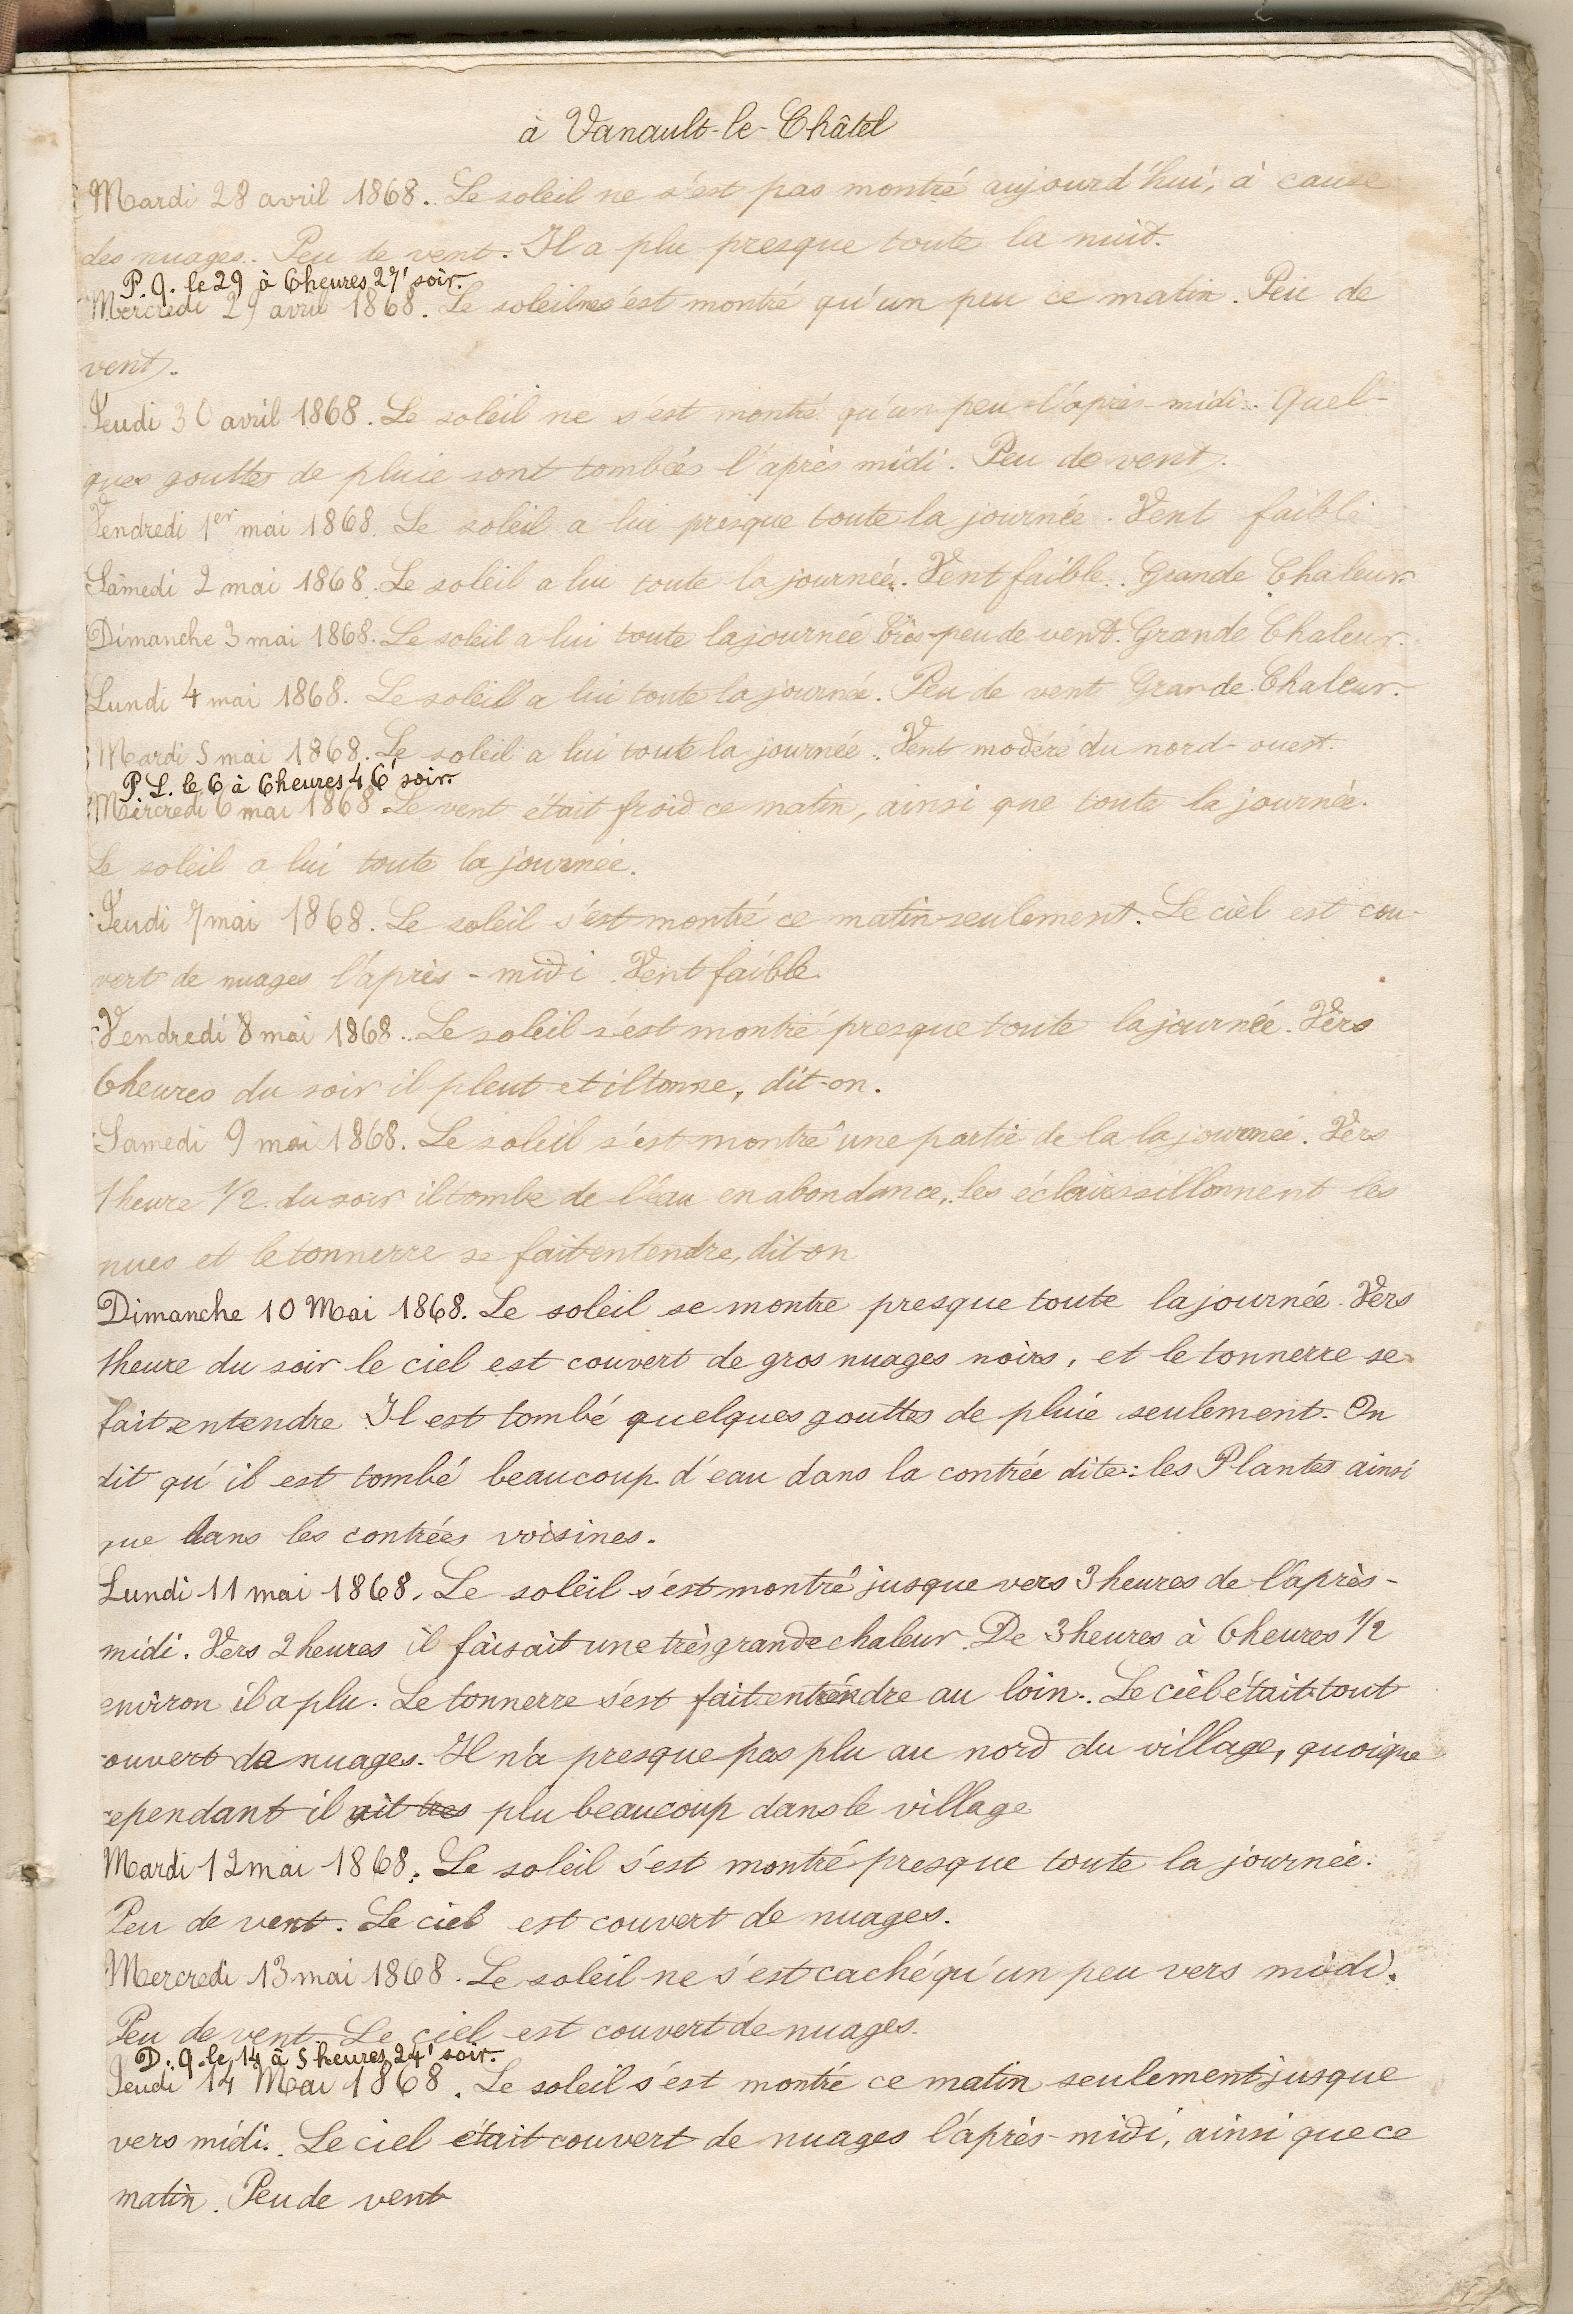 à Vanault-le-Châtel
Mardi 28 avril 1868. Le soleil ne s'est pas montré aujourd'hui, à cause
des nuages. Peu de vent. Il a plu presque toute la nuit.
P. Q. le 29 à 6 heures 27' soir.
Mercredi 29 avril 1868. Le soleil ne s'est montré qu'un peu ce matin. Peu de
vent.
Jeudi 30 avril 1868. Le soleil ne s'est montré qu'un peu l'après-midi. Quel-
ques gouttes de pluie sont tombées l'après midi. Peu de vent.
Vendredi 1er mai 1868. Le soleil a lui presque toute la journée. Vent faible
Samedi 2 mai 1868. Le soleil a lui toute la journée. Vent faible. Grande Chaleur.
Dimanche 3 mai 1868. Le soleil a lui toute la journée très-peu de vent. Grande Chaleur.
Lundi 4 mai 1868. Le soleil a lui toute la journée. Peu de vent Grande Chaleur.
Mardi 5 mai 1868. Le soleil a lui toute la journée. Vent modéré du nord-ouest.
P. L. le 6 à 6 heures 46' soir.
Mercredi 6 mai 1868. Le vent était froid ce matin, ainsi que toute la journée.
Le soleil a lui toute la journée.
Jeudi 7 mai 1868. Le soleil s'est montré ce matin seulement. Le ciel est cou-
vert de nuages l'après-midi. Vent faible.
Vendredi 8 mai 1868. Le soleil s'est montré presque toute la journée. Vers
6 heures du soir il pleut et il tonne, dit-on.
Samedi 9 mai 1868. Le soleil s'est montré une partie de la la journée. Vers
1 heure 1/2 du soir il tombe de l'eau en abondance, les éclairs sillonnent les
nues et le tonnerre se fait entendre, dit-on
Dimanche 10 Mai 1868. Le soleil se montre presque toute la journée. Vers
1 heure du soir le ciel est couvert de gros nuages noirs, et le tonnerre se
fait entendre. Il est tombé quelques gouttes de pluie seulement. On
dit qu'il est tombé beaucoup d'eau dans la contrée dite: les Plantes ainsi
que dans les contrées voisines.
Lundi 11 mai 1868. Le soleil s'est montré jusque vers 3 heures de l'après-
midi. Vers 2 heures il faisait une très grande chaleur. De 3 heures à 6 heures 1/2
environ il a plu. Le tonnerre s'est fait entendre au loin. Le ciel était tout
couvert de nuages. Il n'a presque pas plu au nord du village, quoique
cependant il ait très plu beaucoup dans le village
Mardi 12 mai 1868. Le soleil s'est montré presque toute la journée.
Peu de vent. Le ciel est couvert de nuages.
Mercredi 13 mai 1868. Le soleil ne s'est caché qu'un peu vers midi.
Peu de vent Le ciel est couvert de nuages.
D. Q. le 14 à 5 heures 24' soir.
Jeudi 14 Mai 1868. Le soleil s'est montré ce matin seulement jusque
vers midi. Le ciel était couvert de nuages l'après-midi, ainsi que ce
matin. Peu de vent